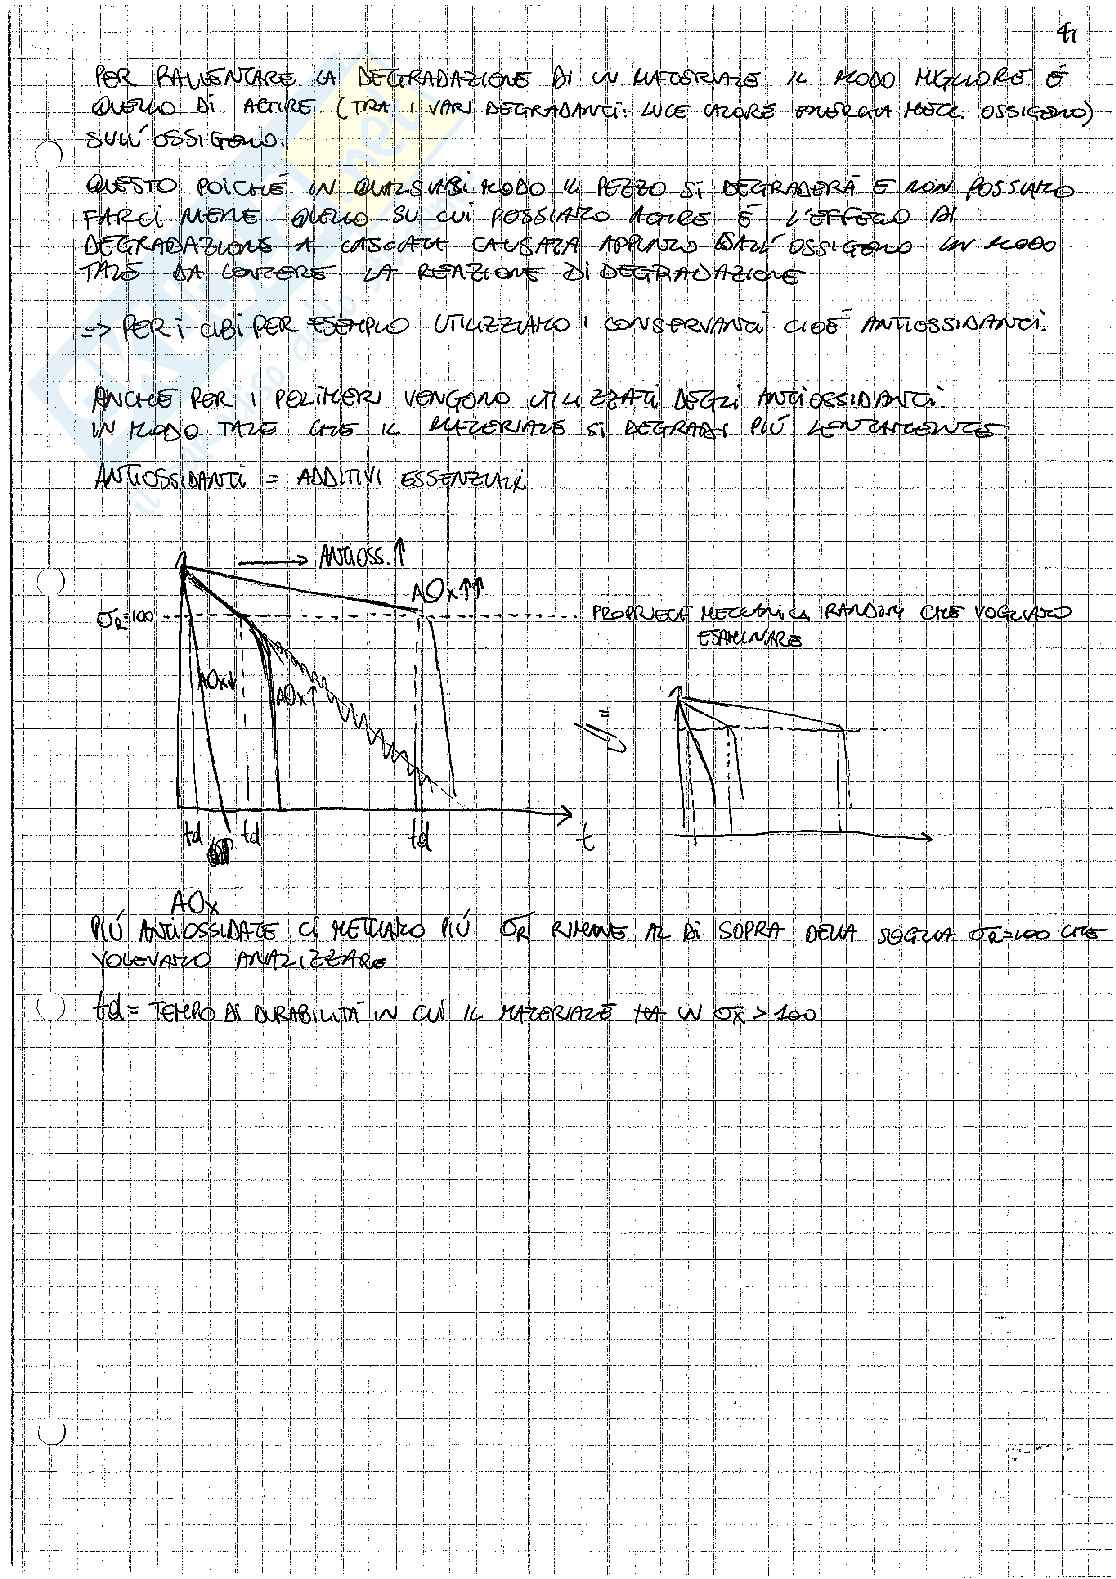 41
PER RALLENTARE LA DEGRADAZIONE DI UN MATERIALE IL MODO MIGLIORE É
QUELLO DI AGIRE (TRA I VARI DEGRADANTI: LUCE CALORE ENERGIA MECC. OSSIGENO)
SULL'OSSIGENO.
QUESTO POICHÉ IN QUALSIASI MODO IL PEZZO SI DEGRADERÁ E NON POSSIAMO
FARCI NIENTE QUELLO SU CUI POSSIAMO AGIRE É L'EFFETTO DI
DEGRADAZIONE A CASCATA CAUSATA APPUNTO DALL'OSSIGENO IN MODO
TALE DA LA REAZIONE DI DEGRADAZIONE
=> PER I CIBI PER ESEMPIO UTILIZZIAMO I CONSERVANTI CIOÉ ANTIOSSIDANTI.
ANCHE PER I POLIMERI VENGONO UTILIZZATI DEGLI ANTIOSSIDANTI
IN MODO TALE CHE IL MATERIALE SI DEGRADI PIÚ LENTAMENTE
ANTIOSSIDANTI = ADDITIVI ESSENZIALI
→ ANTIOSS.↑
AOx↑↑
σR=100
PROPRIETÁ MECCANICA RANDOM CHE VOGLIAMO
ESAMINARE
AOx↓
AOx↑
td
td
td
t
AOx
PIÚ ANTIOSSIDANTE CI METTIAMO PIÚ σR RIMANE AL DI SOPRA DELLA SOGLIA σR=100 CHE
VOLEVAMO ANALIZZARE
td = TEMPO DI DURABILITÁ IN CUI IL MATERIALE HA UN σR > 100